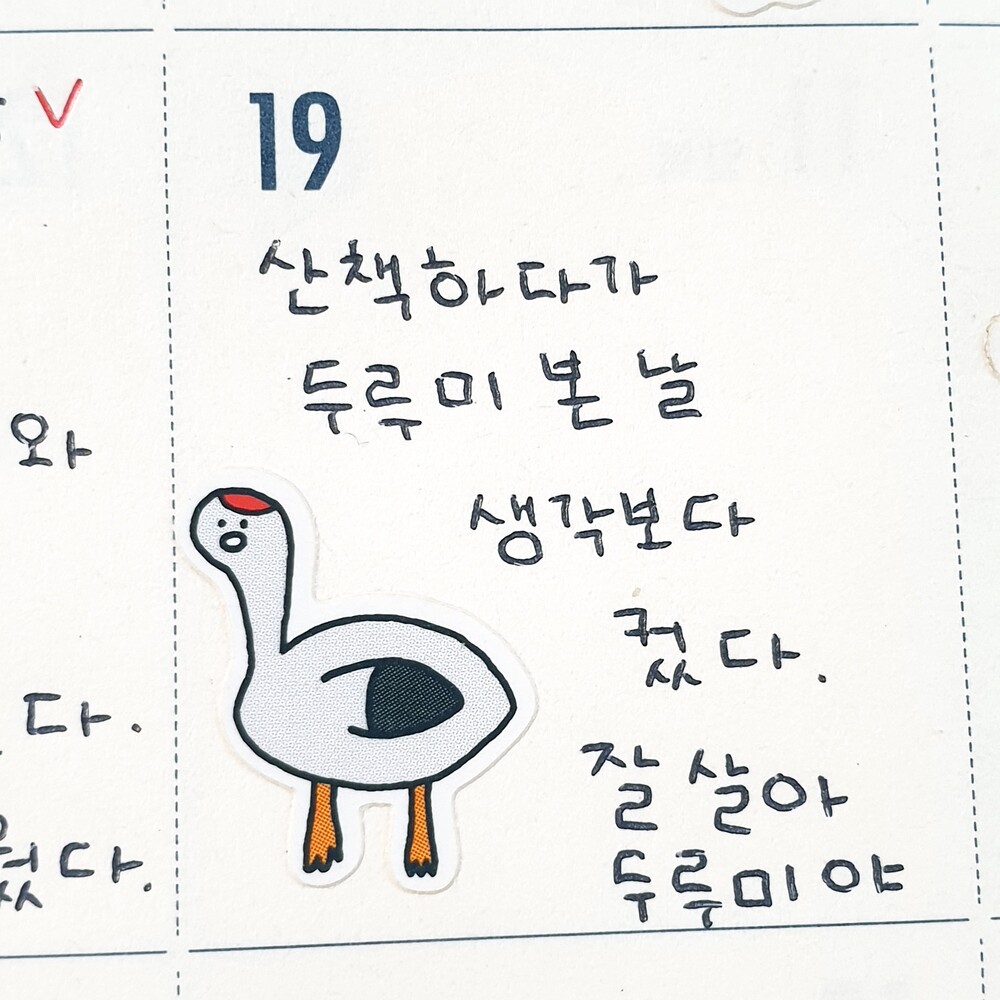 19
산책하다가
두루미 본 날
생각보다
컸다.
잘 살아
두루미야
와
다.
다.